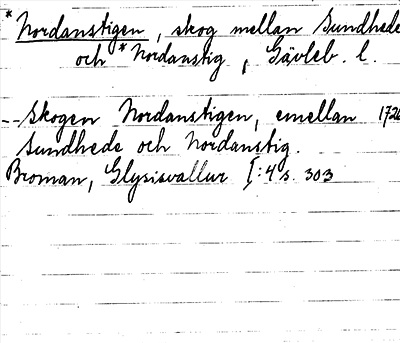 *Nordanstigen, skog mellan Sundhede
och *Nordanstig, Gävleb. l.
-- Skogen Nordanstigen, emellan 1726
Sundhede och Nordanstig.
Broman, Glysisvallur I:4 s. 303